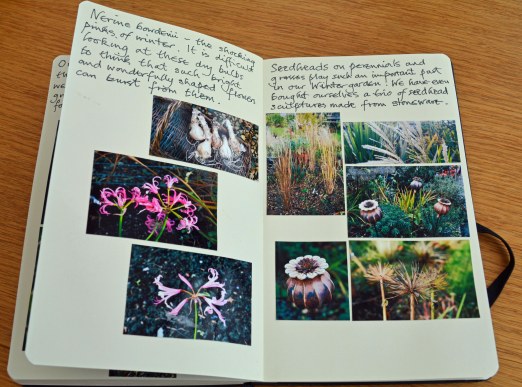 Nerine bowdenii - the shocking
pinks of winter. It is difficult
looking at these dry bulbs
to think that such bright
and wonderfully shaped flowers
can burst from them.
Seedheads on perennials and
grasses play such an important part
in our Wintergarden. We have even
bought ourselves a trio of seedhead
sculptures made from stoneware.